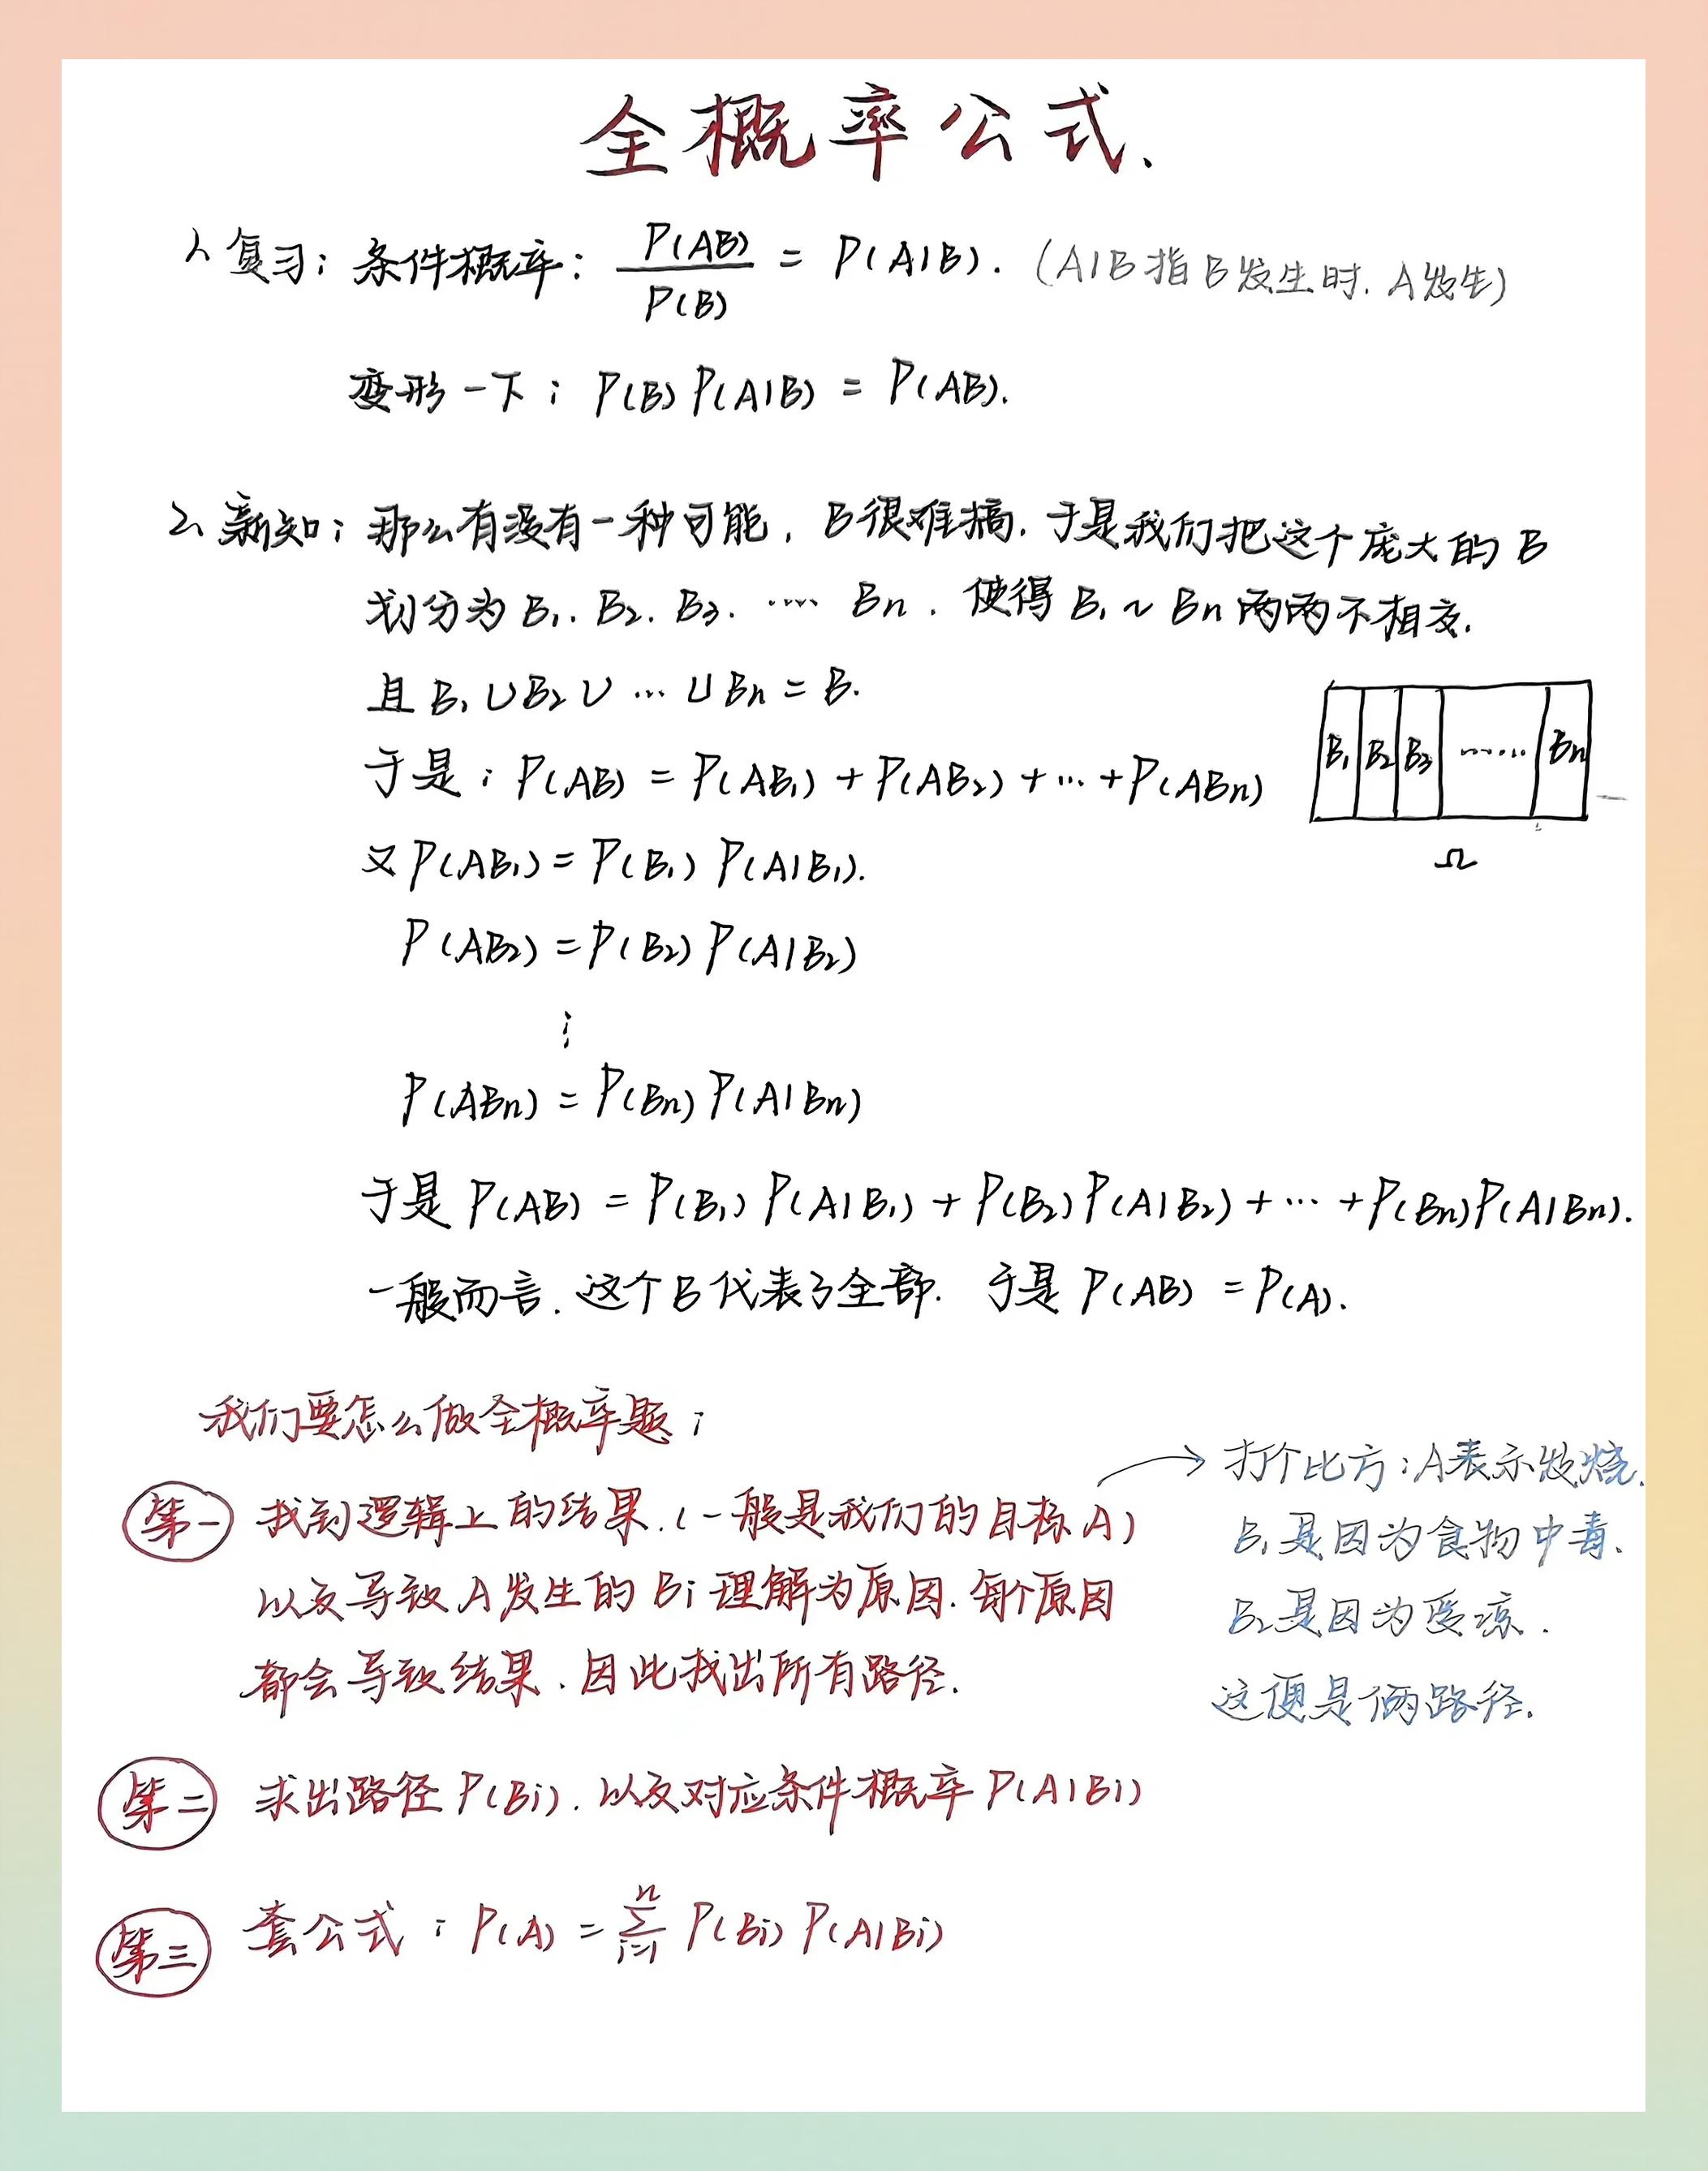 全概率公式.
1、复习：条件概率：P(AB)/P(B) = P(A|B). (A|B指B发生时.A发生)
变形一下：P(B)P(A|B) = P(AB).
2、新知：那么有没有一种可能，B很难搞.于是我们把这个庞大的B
划分为B₁.B₂.B₃.…… Bn.使得B₁~Bn两两不相交.
且B₁∪B₂∪…∪Bn=B.
于是：P(AB) = P(AB₁)+P(AB₂)+…+P(ABn)
B₁ B₂ B₃ …… Bn
Ω
又P(AB₁)=P(B₁)P(A|B₁).
P(AB₂)=P(B₂)P(A|B₂)
⋮
P(ABn)=P(Bn)P(A|Bn)
于是P(AB)=P(B₁)P(A|B₁)+P(B₂)P(A|B₂)+…+P(Bn)P(A|Bn).
一般而言.这个B代表了全部. 于是P(AB)=P(A).
我们要怎么做全概率题：
第一 找到逻辑上的结果.(一般是我们的目标A)
以及导致A发生的Bi理解为原因.每个原因
都会导致结果.因此找出所有路径.
→ 打个比方：A表示发烧.
B₁是因为食物中毒.
B₂是因为受凉.
这便是俩路径.
第二 求出路径P(Bi).以及对应条件概率P(A|Bi)
第三 套公式：P(A)=∑ⁿᵢ₌₁ P(Bi)P(A|Bi)